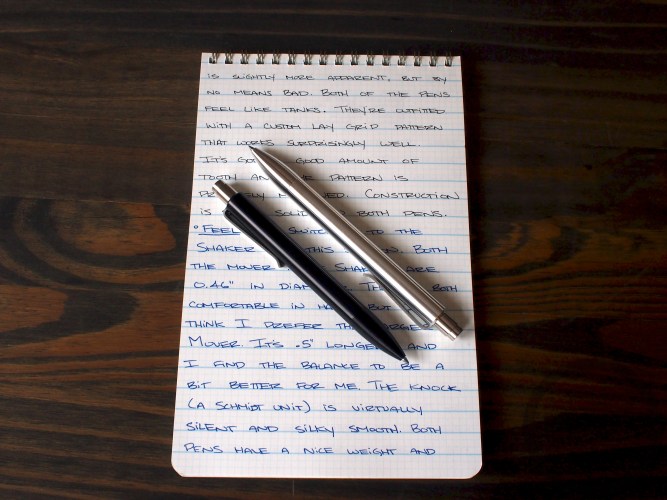 IS SLIGHTLY MORE APPARENT, BUT BY
NO MEANS BAD. BOTH OF THE PENS
FEEL LIKE TANKS. THEY'RE OUTFITTED
WITH A CUSTOM LAY GRID PATTERN
THAT WORKS SURPRISINGLY WELL
IT'S GOOD AMOUNT OF
TOOTH PATTERN IS
CONSTRUCTION
IS BOTH PENS.
° FEEL TO THE
SHAKER THIS BOTH
THE MOVER ARE
0.46" IN BOTH
COMFORTABLE IN BUT
THINK I PREFER
MOVER. IT'S .5" AND
I FIND THE BALANCE TO BE A
BIT BETTER FOR ME. THE KNOCK
(A SCHMIDT UNIT) IS VIRTUALLY
SILENT AND SILKY SMOOTH. BOTH
PENS HAVE A NICE WEIGHT AND